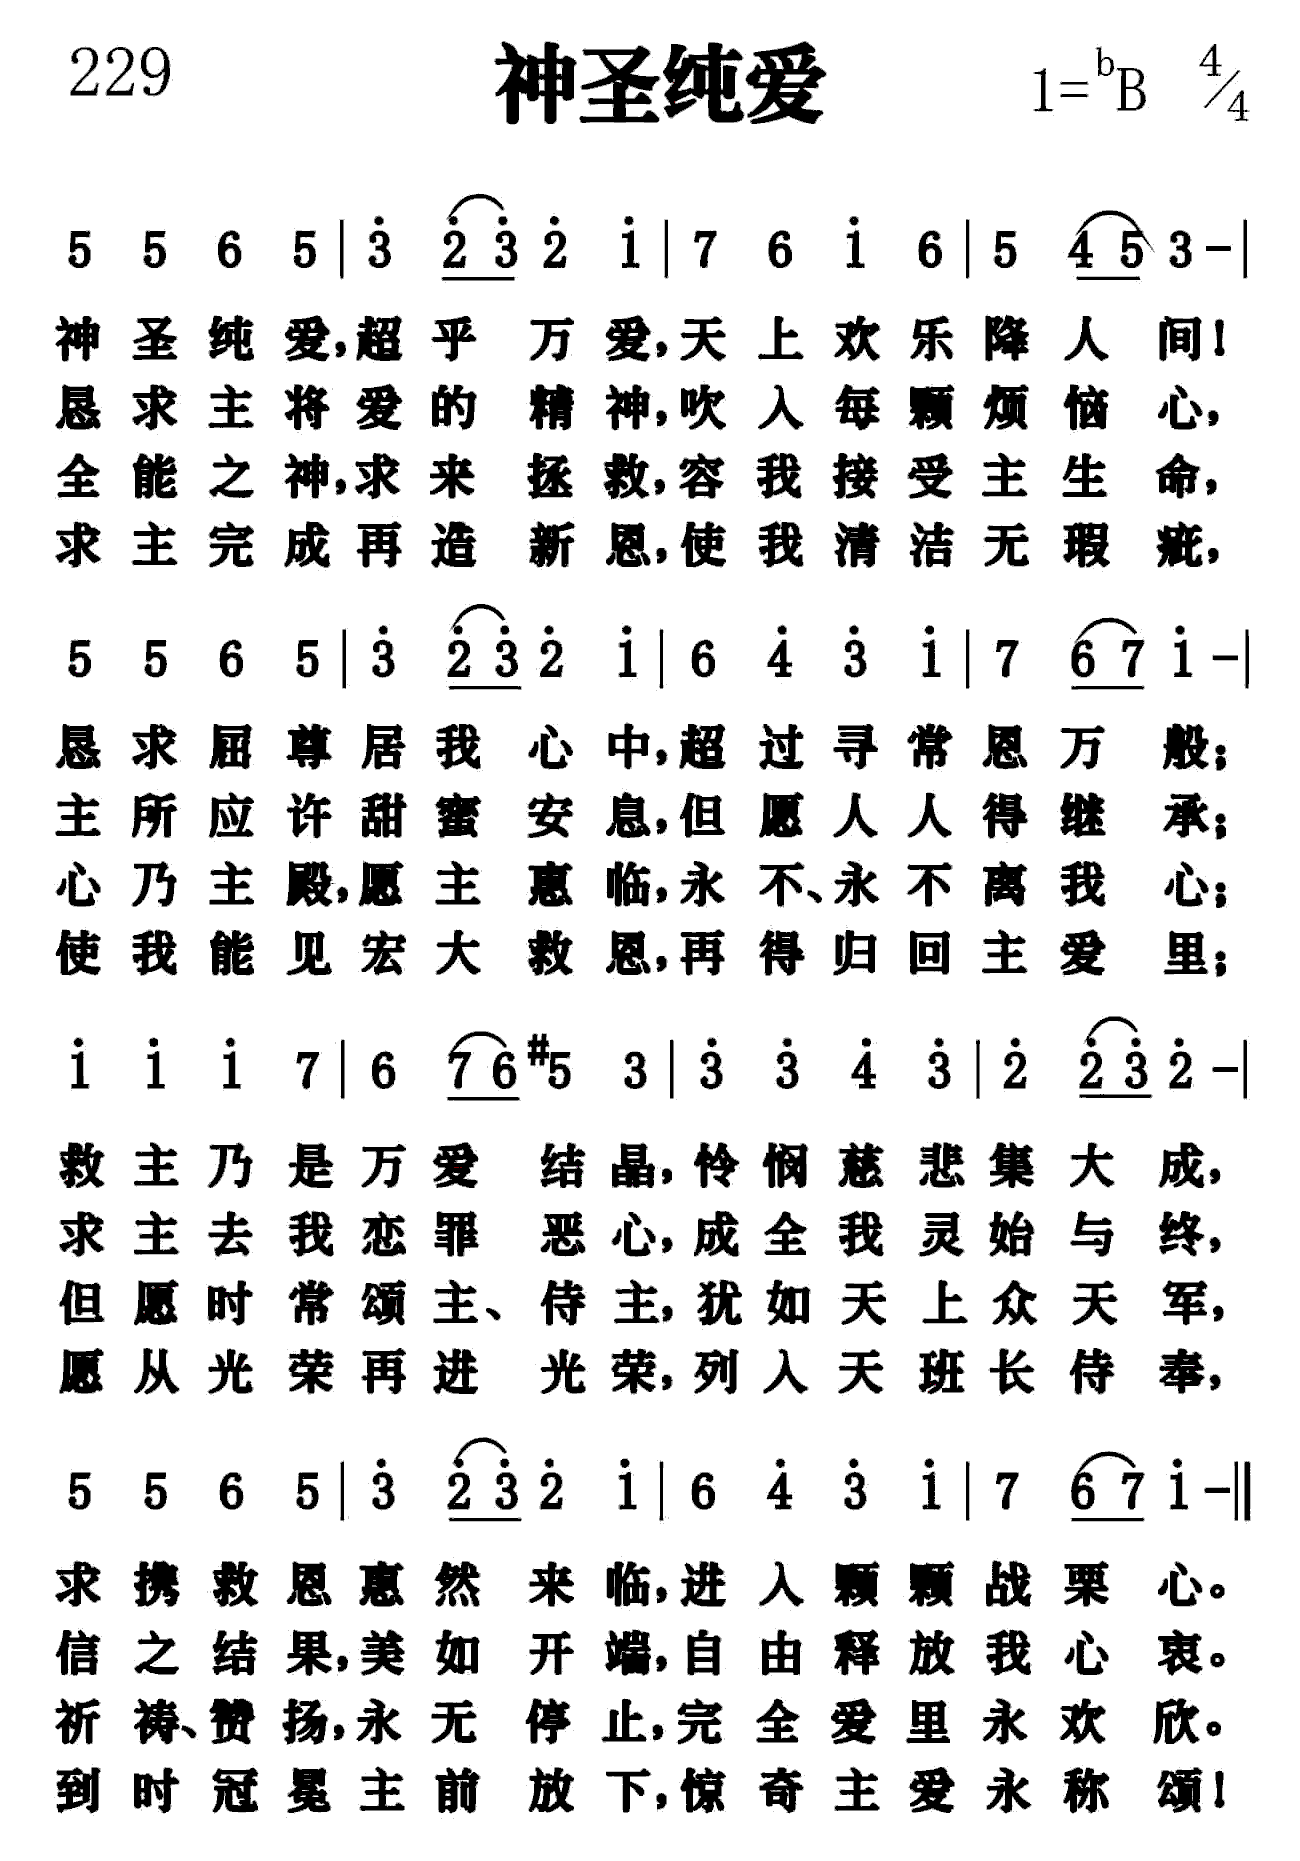 229 神圣纯爱 1=ᵇB 4/4
5 5 6 5 | 3̇ 2̇ 3̇ 2̇ 1̇ | 7 6 1̇ 6 | 5 4 5 3 - |
神圣纯爱,超乎万爱,天上欢乐降人间!
恳求主将爱的精神,吹入每颗烦恼心,
全能之神,求来拯救,容我接受主生命,
求主完成再造新恩,使我清洁无瑕疵,
5 5 6 5 | 3̇ 2̇ 3̇ 2̇ 1̇ | 6 4̇ 3̇ 1̇ | 7 6 7 1̇ - |
恳求屈尊居我心中,超过寻常恩万般;
主所应许甜蜜安息,但愿人人得继承;
心乃主殿,愿主惠临,永不、永不离我心;
使我能见宏大救恩,再得归回主爱里;
1̇ 1̇ 1̇ 7 | 6 7 6 #5 3 | 3̇ 3̇ 4̇ 3̇ | 2̇ 2̇ 3̇ 2̇ - |
救主乃是万爱结晶,怜悯慈悲集大成,
求主去我恋罪恶心,成全我灵始与终,
但愿时常颂主、侍主,犹如天上众天军,
愿从光荣再进光荣,列入天班长侍奉,
5 5 6 5 | 3̇ 2̇ 3̇ 2̇ 1̇ | 6 4̇ 3̇ 1̇ | 7 6 7 1̇ - ||
求携救恩惠然来临,进入颗颗战栗心。
信之结果,美如开端,自由释放我心衷。
祈祷、赞扬,永无停止,完全爱里永欢欣。
到时冠冕主前放下,惊奇主爱永称颂!